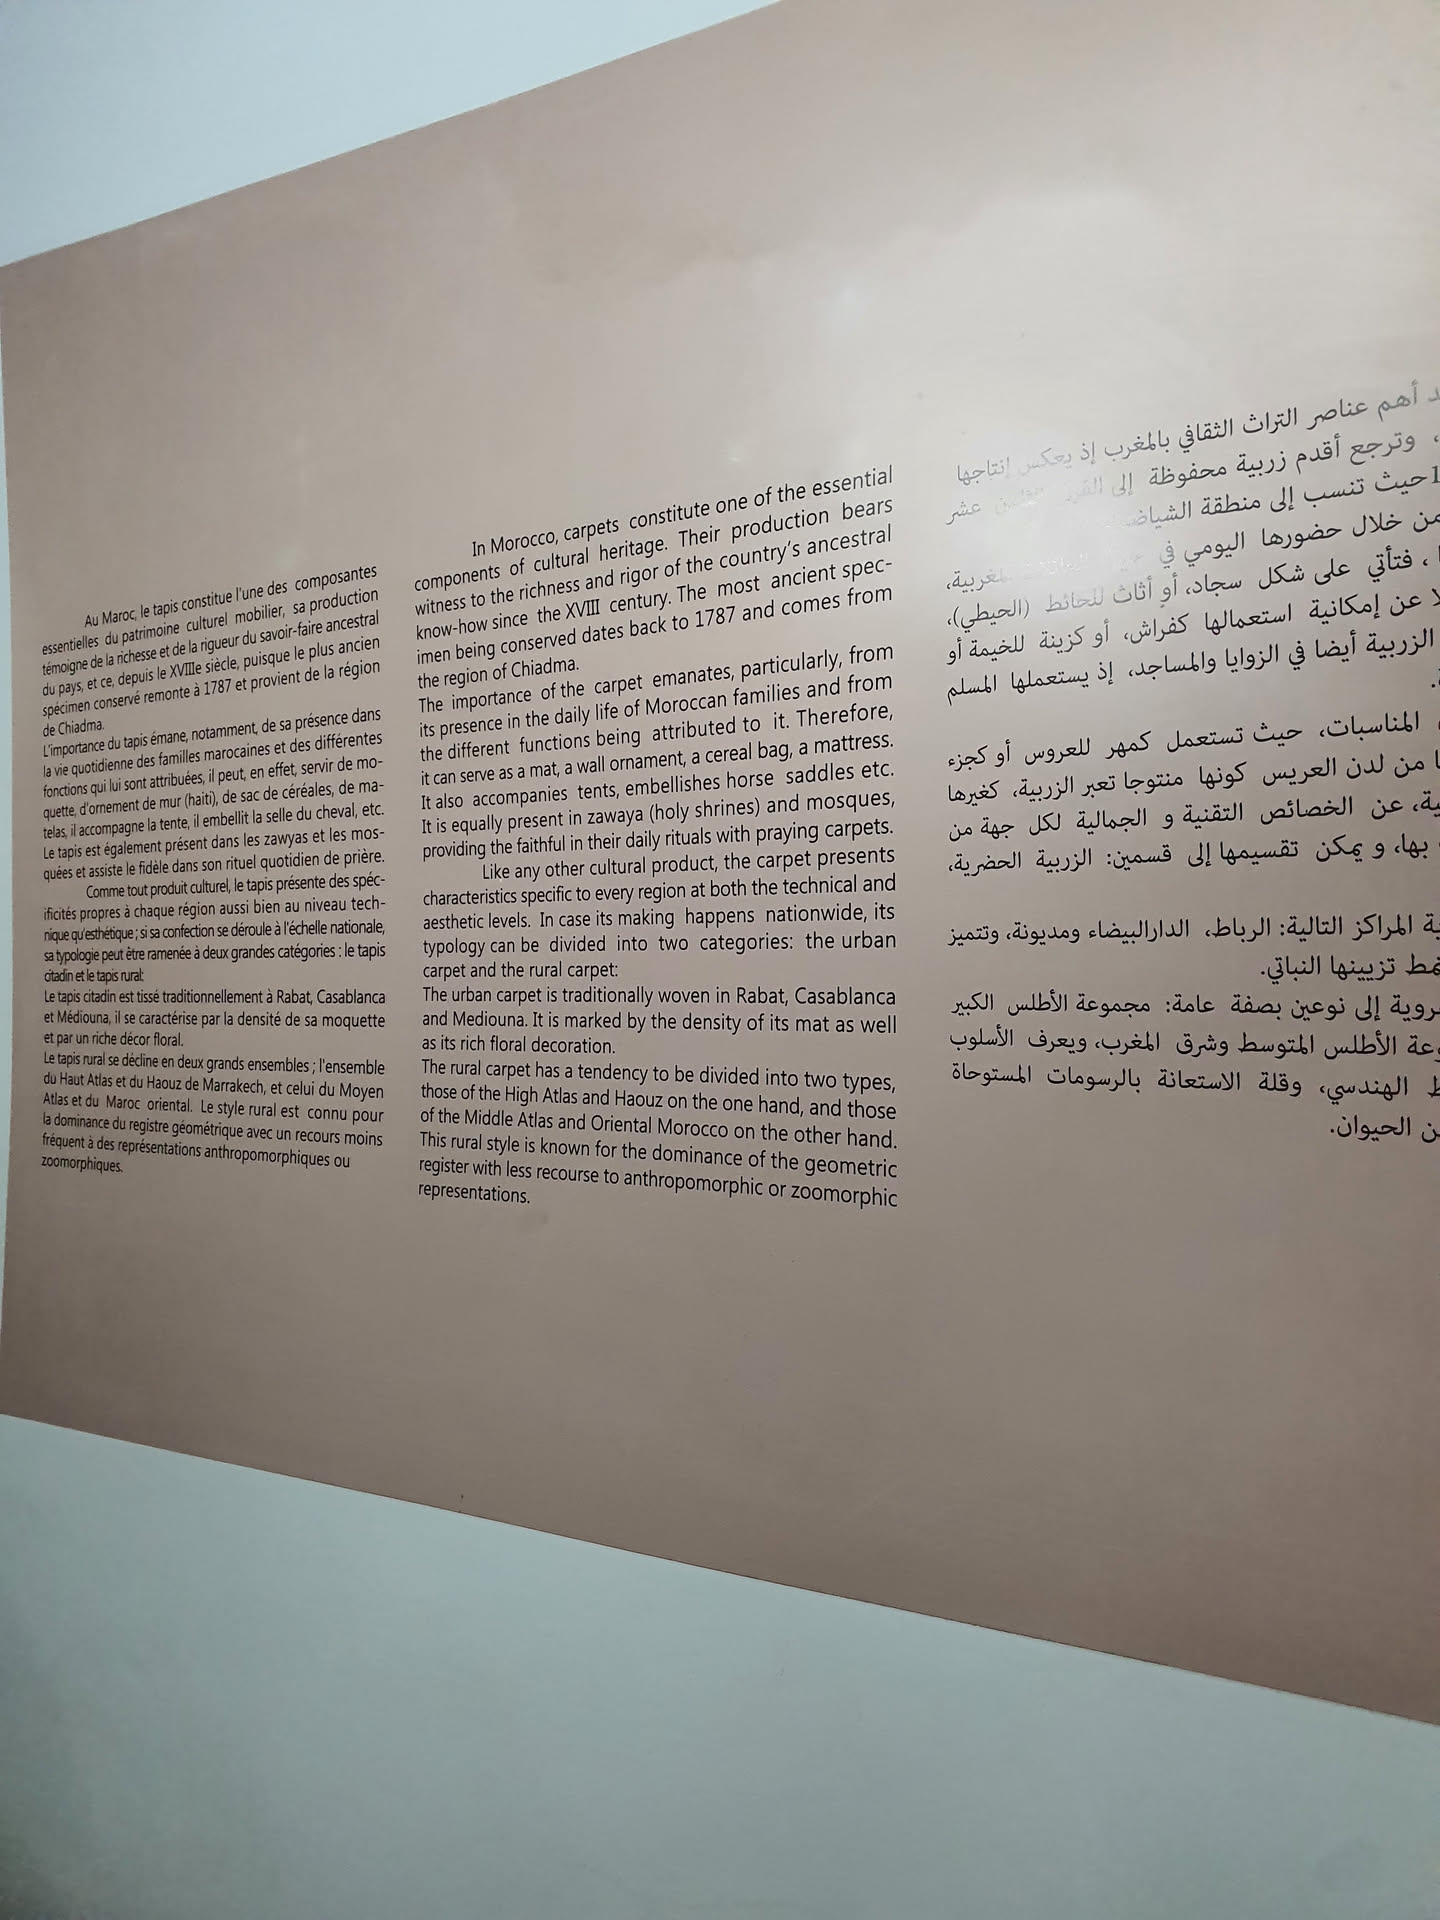 Au Maroc, le tapis constitue l'une des composantes
essentielles du patrimoine culturel mobilier, sa production
témoigne de la richesse et de la rigueur du savoir-faire ancestral
du pays, et ce, depuis le XVIIIe siècle, puisque le plus ancien
spécimen conservé remonte à 1787 et provient de la région
de Chiadma.
L'importance du tapis émane, notamment, de sa présence dans
la vie quotidienne des familles marocaines et des différentes
fonctions qui lui sont attribuées, il peut, en effet, servir de mo-
quette, d'ornement de mur (haiti), de sac de céréales, de ma-
telas, il accompagne la tente, il embellit la selle du cheval, etc.
Le tapis est également présent dans les zawyas et les mos-
quées et assiste le fidèle dans son rituel quotidien de prière.
Comme tout produit culturel, le tapis présente des spéc-
ificités propres à chaque région aussi bien au niveau tech-
nique qu'esthétique ; si sa confection se déroule à l'échelle nationale,
sa typologie peut être ramenée à deux grandes catégories : le tapis
citadin et le tapis rural:
Le tapis citadin est tissé traditionnellement à Rabat, Casablanca
et Médiouna, il se caractérise par la densité de sa moquette
et par un riche décor floral.
Le tapis rural se décline en deux grands ensembles ; l'ensemble
du Haut Atlas et du Haouz de Marrakech, et celui du Moyen
Atlas et du Maroc oriental. Le style rural est connu pour
la dominance du registre géométrique avec un recours moins
fréquent à des représentations anthropomorphiques ou
zoomorphiques.
In Morocco, carpets constitute one of the essential
components of cultural heritage. Their production bears
witness to the richness and rigor of the country's ancestral
know-how since the XVIII century. The most ancient spec-
imen being conserved dates back to 1787 and comes from
the region of Chiadma.
The importance of the carpet emanates, particularly, from
its presence in the daily life of Moroccan families and from
the different functions being attributed to it. Therefore,
it can serve as a mat, a wall ornament, a cereal bag, a mattress.
It also accompanies tents, embellishes horse saddles etc.
It is equally present in zawaya (holy shrines) and mosques,
providing the faithful in their daily rituals with praying carpets.
Like any other cultural product, the carpet presents
characteristics specific to every region at both the technical and
aesthetic levels. In case its making happens nationwide, its
typology can be divided into two categories: the urban
carpet and the rural carpet:
The urban carpet is traditionally woven in Rabat, Casablanca
and Mediouna. It is marked by the density of its mat as well
as its rich floral decoration.
The rural carpet has a tendency to be divided into two types,
those of the High Atlas and Haouz on the one hand, and those
of the Middle Atlas and Oriental Morocco on the other hand.
This rural style is known for the dominance of the geometric
register with less recourse to anthropomorphic or zoomorphic
representations.
أهم عناصر التراث الثقافي بالمغرب إذ يعكس إنتاجها
، وترجع أقدم زربية محفوظة إلى القرن عشر
حيث تنسب إلى منطقة
من خلال حضورها اليومي في
، فتأتي على شكل سجاد، أو أثاث للحائط (الحيطي)،
عن إمكانية استعمالها كفراش، أو كزينة للخيمة أو
الزربية أيضا في الزوايا والمساجد، إذ يستعملها المسلم
المناسبات، حيث تستعمل كمهر للعروس أو كجزء
من لدن العريس كونها منتوجا تعبر الزربية، كغيرها
عن الخصائص التقنية و الجمالية لكل جهة من
بها، و يمكن تقسيمها إلى قسمين: الزربية الحضرية،
المراكز التالية: الرباط، الدارالبيضاء ومديونة، وتتميز
تزيينها النباتي.
إلى نوعين بصفة عامة: مجموعة الأطلس الكبير
الأطلس المتوسط وشرق المغرب، ويعرف الأسلوب
الهندسي، وقلة الاستعانة بالرسومات المستوحاة
الحيوان.